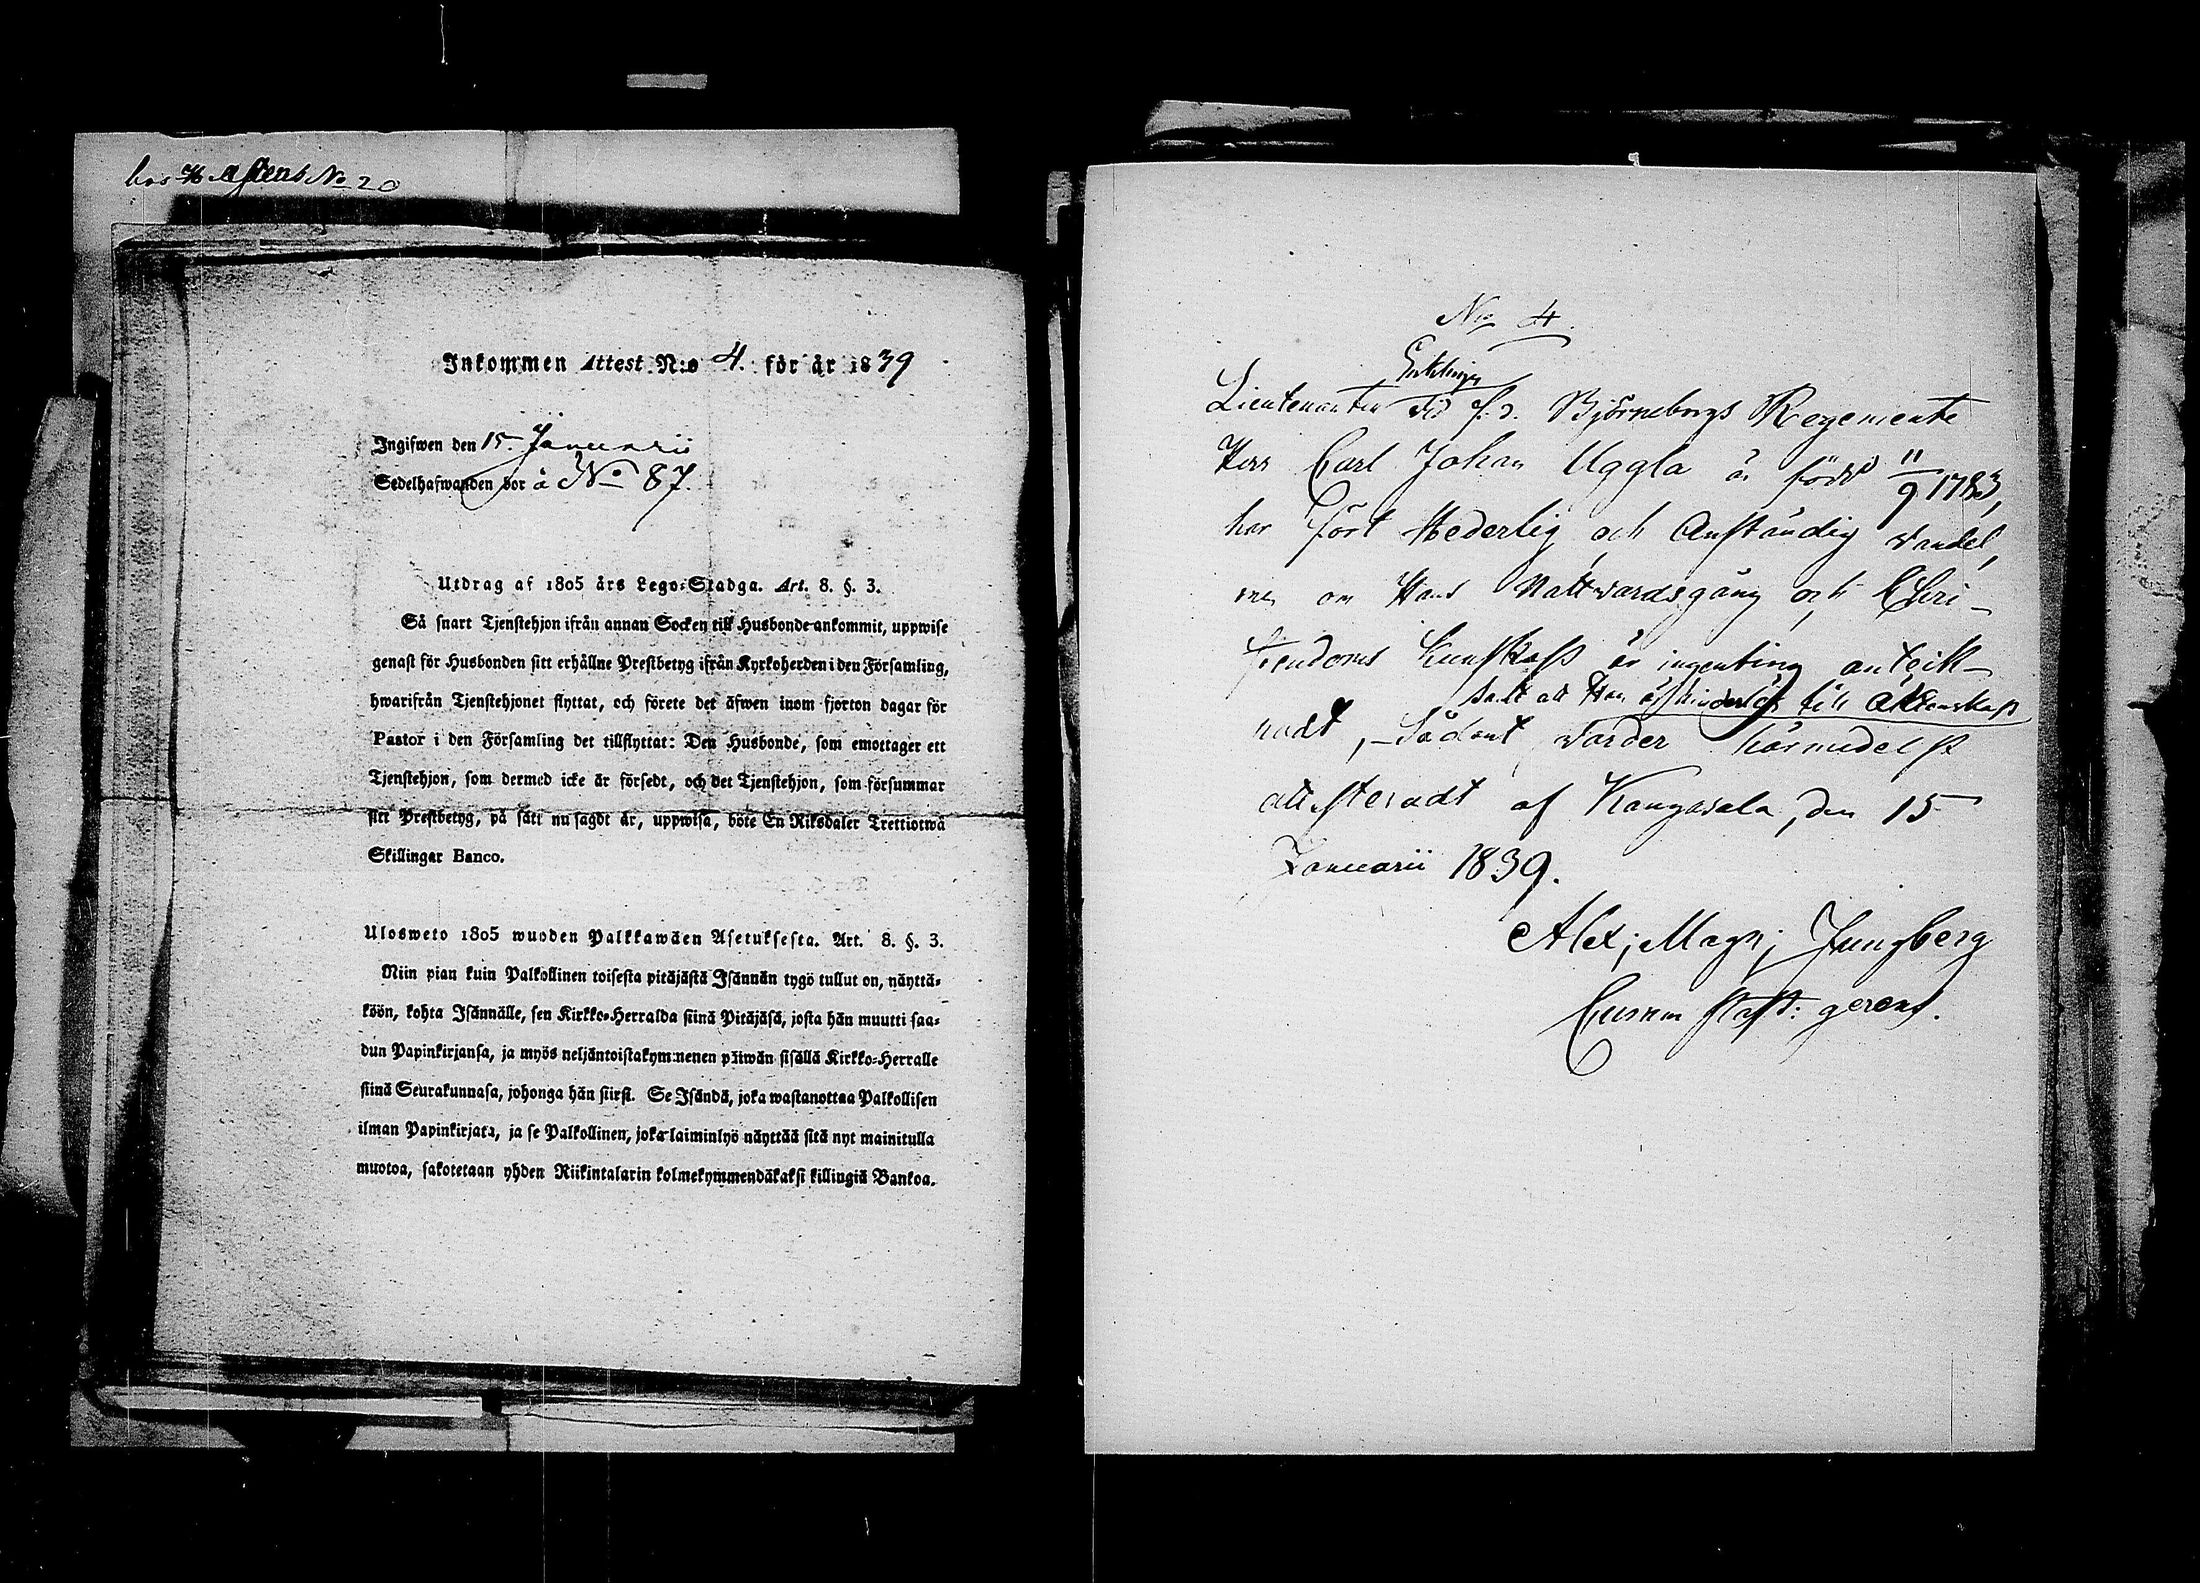 hos No 20
Inkommen Attest N:o 4. för år 1839
Ingifwen den 15 Januarii
Sedelhafwanden bor å No 87.
Utdrag af 1805 års Lego-Stadga. Art. 8. §. 3.
Så snart Tjenstehjon ifrån annan Socken till Husbonde ankommit, uppwise
genast för Husbonden sitt erhållne Prestbetyg ifrån Kyrkoherden i den Församling,
hwarifrån Tjenstehjonet flyttat, och förete det äfwen inom fjorton dagar för
Pastor i den Församling det tillflyttat: Den Husbonde, som emottager ett
Tjenstehjon, som dermed icke är försedt, och det Tjenstehjon, som försummar
sitt Prestbetyg, på sätt nu sagdt är, uppwisa, böte En Riksdaler Trettiotwå
Skillingar Banco.
Ulosweto 1805 wuoden Palkkawäen Asetuksesta. Art. 8. §. 3.
Niin pian kuin Palkollinen toisesta pitäjästä Isännän tygö tullut on, näyttä-
köön, kohta Isännälle, sen Kirkko-Herralda siinä Pitäjäsä, josta hän muutti saa-
dun Papinkirjansa, ja myös neljäntoistakymmenen päiwän sisällä Kirkko-Herralle
siinä Seurakunnasa, johonga hän siirsi. Se Isändä, joka wastanottaa Palkollisen
ilman Papinkirjata, ja se Palkollinen, joka laiminlyö näyttää sitä nyt mainitulla
muotoa, sakotetaan yhden Riikintalarin kolmekymmendäkaksi killingiä Bankoa.
No 4.
Enklingen
Lieutenanten wid f.d. Björneborgs Regemente
Herr Carl Johan Uggla är född 11/9 1783,
har fört Hederlig och Anständig wandel,
men om Hans Nattwardsgång och Chri-
stendoms Kunskap är ingenting anteck-
samt att Han är hinderlös till Äktenskap
nadt, - Sådant warder härmedelst
attesteradt af Kangasala, den 15
Januarii 1839.
Alex; Magn; Jungberg
Cumm past: gerens.